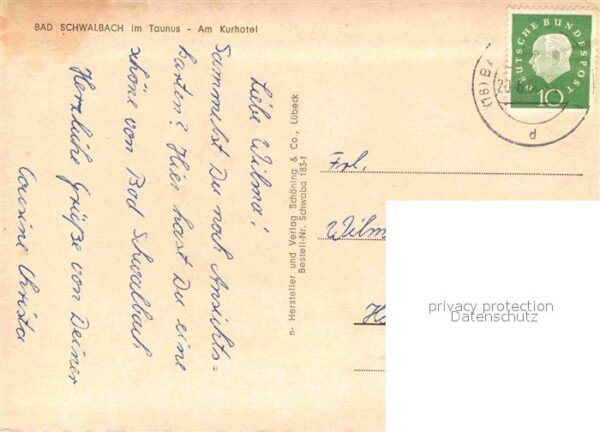 BAD SCHWALBACH im Taunus - Am Kurhotel
Liebe Wilma!
Sammelst Du noch Ansichts=
karten? Hier hast Du eine
schöne von Bad Schwalbach
Herzliche Grüße von Deiner
Cousine Christa
n- Hersteller und Verlag Schöning & Co., Lübeck
Bestell-Nr. Schwaba 183-f
DEUTSCHE BUNDESPOST
10
(16) B
20.6
d
Frl.
Wilm
H
privacy protection
Datenschutz